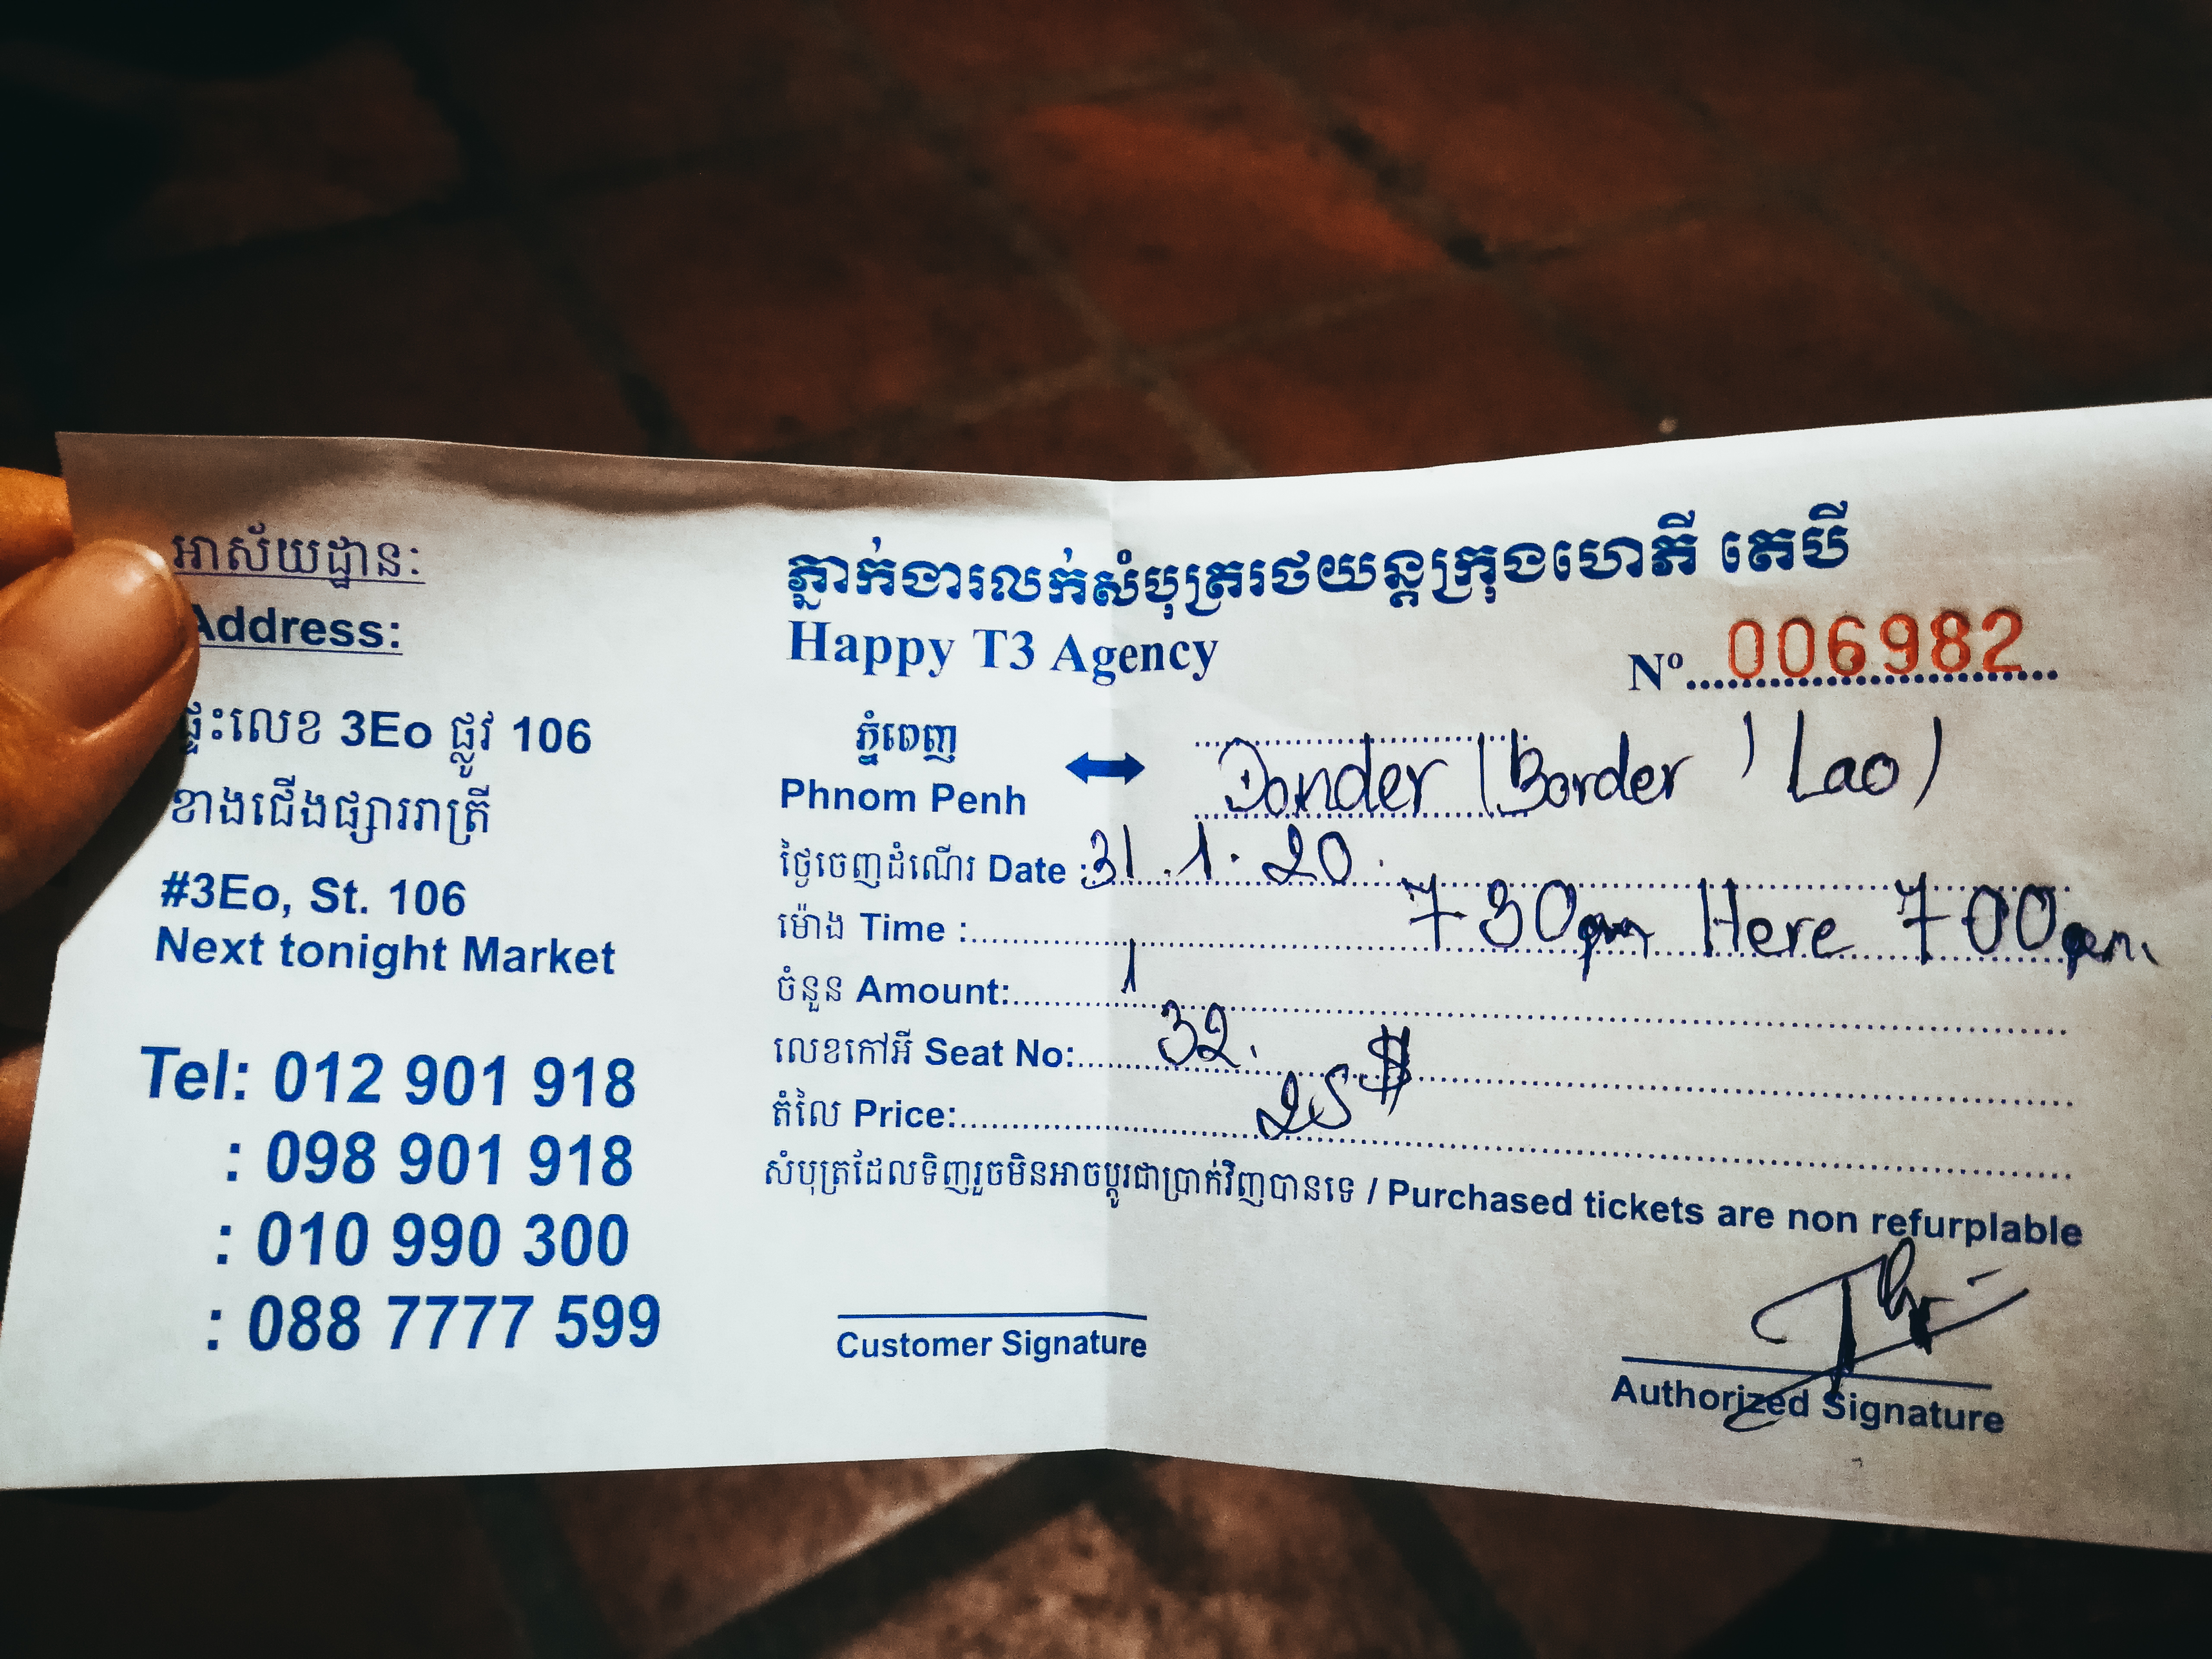 អាស័យដ្ឋាន:
Address:
ផ្ទះលេខ 3Eo ផ្លូវ 106
ខាងជើងផ្សាររាត្រី
#3Eo, St. 106
Next tonight Market
Tel: 012 901 918
: 098 901 918
: 010 990 300
: 088 7777 599
ភ្នាក់ងារលក់សំបុត្ររថយន្តក្រុងហេភី តេបី
Happy T3 Agency
Nº 006982
ភ្នំពេញ
Phnom Penh ↔ Donder (Border ) Lao)
ថ្ងៃចេញដំណើរ Date : 31.1.20.
ម៉ោង Time : 730pm Here 700pm.
ចំនួន Amount: 1
លេខកៅអី Seat No: 32.
តំលៃ Price: 25$
សំបុត្រដែលទិញរួចមិនអាចប្តូរជាប្រាក់វិញបានទេ / Purchased tickets are non refurplable
Customer Signature
Authorized Signature